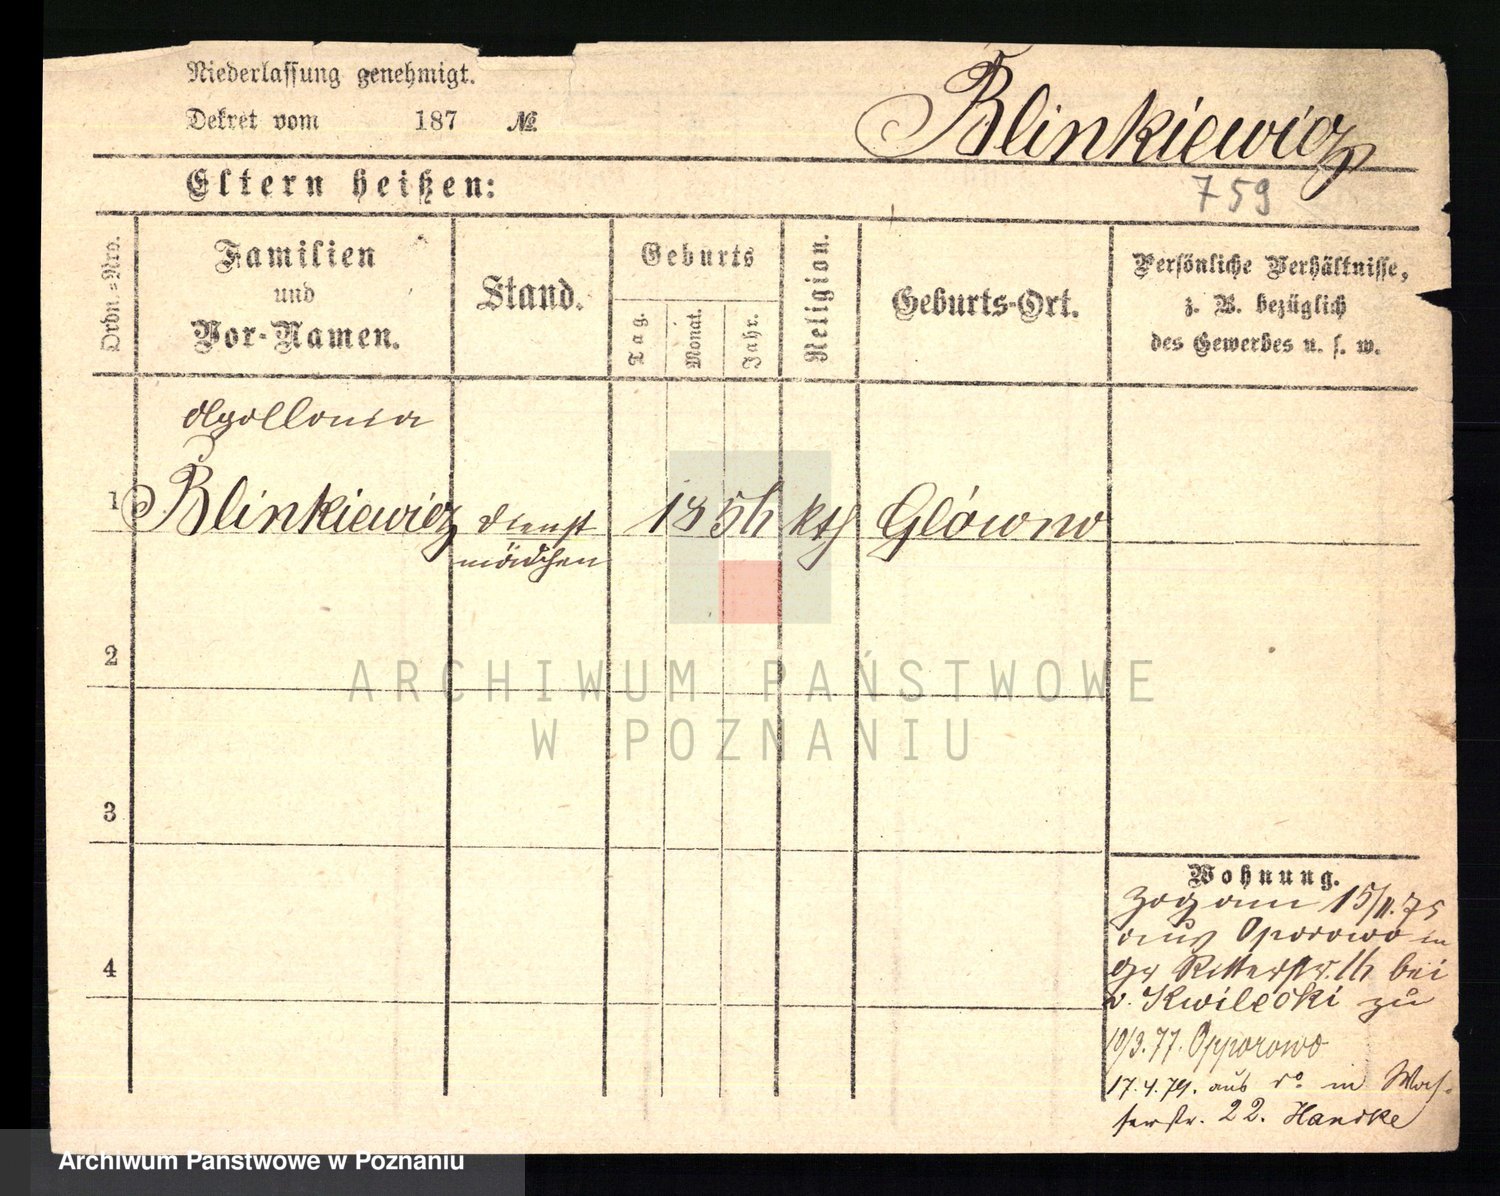 Niederlassung genehmigt.
Dekret vom 187 №
Blinkiewicz
Eltern heißen:
759
Ordn.-Nro.
Familien
und
Vor-Namen.
Stand.
Geburts
Tag.
Monat.
Jahr.
Religion.
Geburts-Ort.
Persönliche Verhältnisse,
z. B. bezüglich
des Gewerbes u. s. w.
Apollonia
1 Blinkiewicz Dienst 185 kth Glówno
mädchen
2
ARCHIWUM PAŃSTWOWE
W POZNANIU
3
Wohnung.
zog am 15/11.75
aus Oporowo in
gr Ritterstr. bei
v. Kwilecki zu
10/3.77. Opporowo
17.4.79. aus do. in Was-
serstr. 22. Handke
4
Archiwum Państwowe w Poznaniu